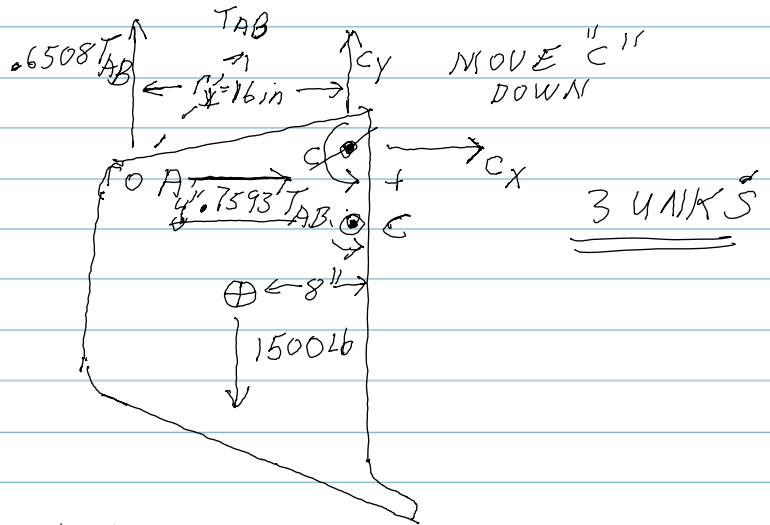 TAB
.6508TAB
CY
16in
MOVE "C"
DOWN
C
CX
A
+
.7593TAB
C
3 UNKS
8"
1500Lb